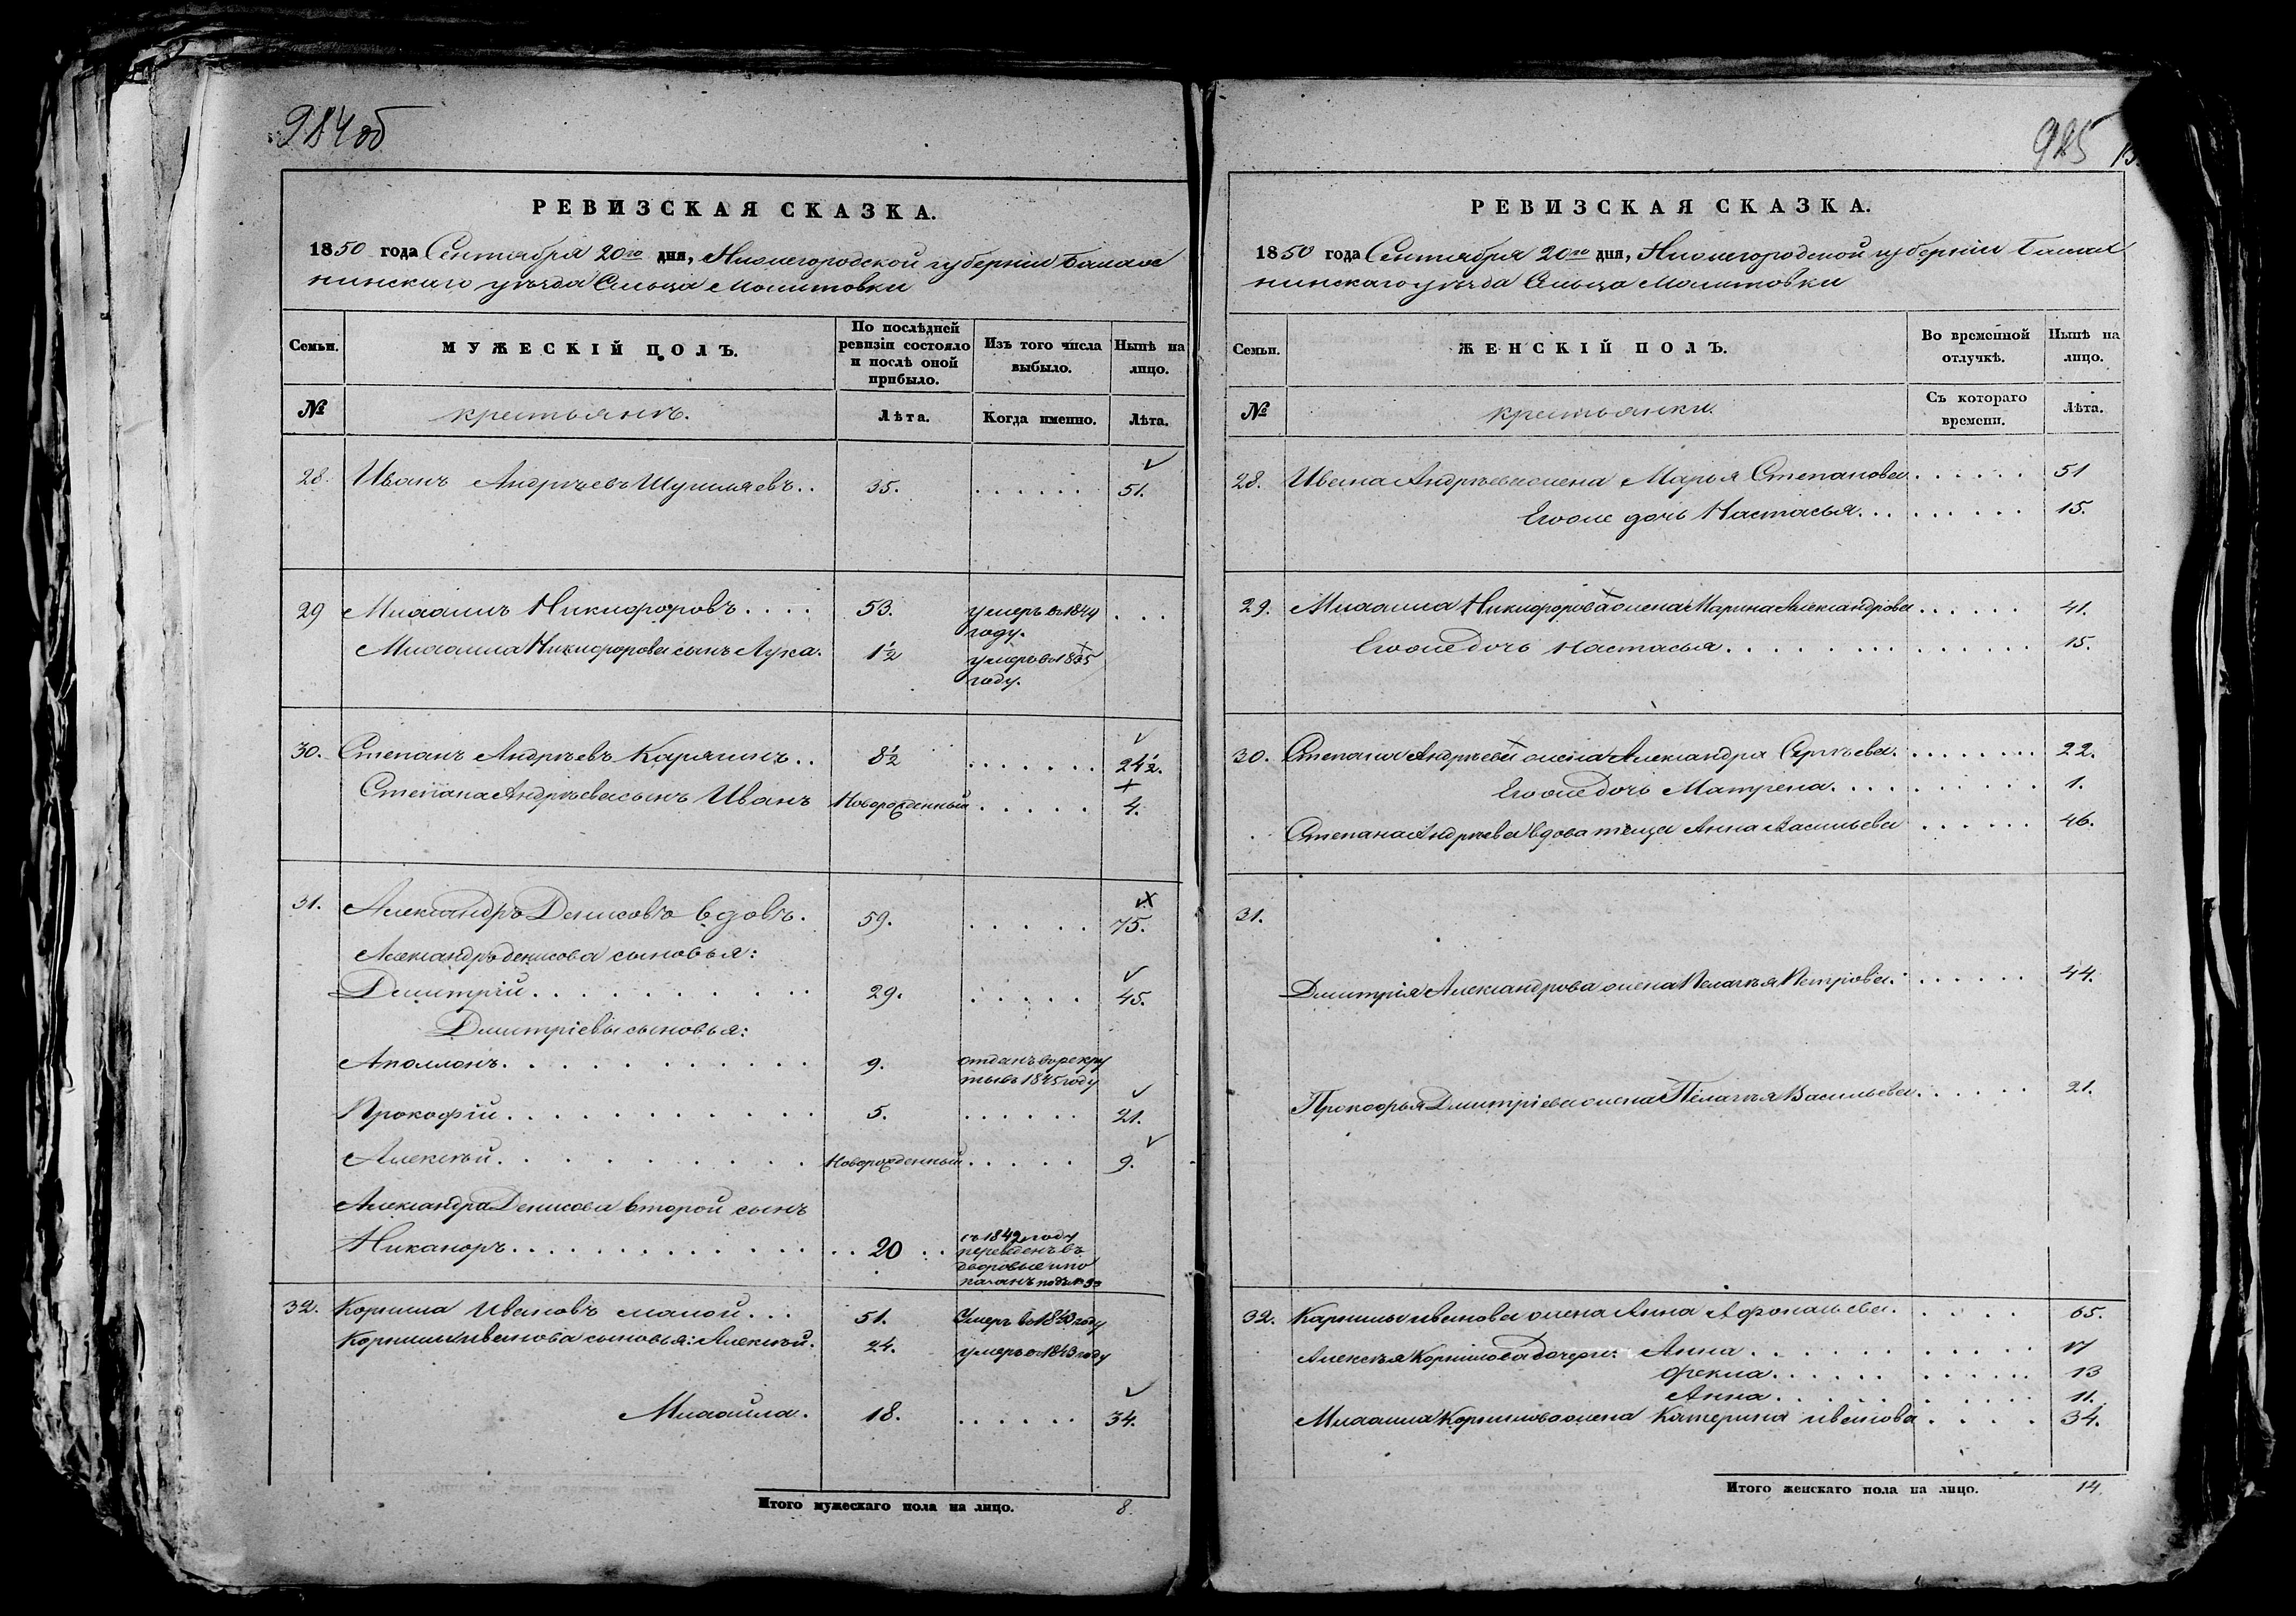 984об
РЕВИЗСКАЯ СКАЗКА.
1850 года Сентября 20го дня, Нижегородской губерніи Балах
нинскаго уѣзда Сельца Молитовки
Семьи.
МУЖЕСКІЙ ПОЛЪ.
По послѣдней ревизіи состояло и послѣ оной прибыло.
Изъ того числа выбыло.
Нынѣ на лицо.
№
крестьянъ.
Лѣта.
Когда именно.
Лѣта.
28. Иванъ Андреевъ .. 35. ...... 51.
29 Михаилъ Никифоровъ .... 53. умеръ въ 1844 году. ...
Михаила Никифорова сынъ Лука. 1½ умеръ въ 1835 году.
30. Степанъ Андреевъ Карягинъ .. 8½ ...... 24½.
Степана Андреева сынъ Иванъ Новорожденный ..... 4.
31. Александръ Денисовъ вдовъ. 59. ..... 75.
Александръ денисова сыновья:
Дмитрій .......... 29. ..... 45.
Дмитріевы сыновья:
Аполлонъ .......... 9. отданъ въ рекру
ты въ 1845 году
Прокофій .......... 5. ...... 21.
Алексѣй .......... Новорожденный ..... 9.
Александра Денисова второй сынъ
Никаноръ .......... 20 съ 1842 году
переведенъ въ
дворовые и по
казанъ подъ №
32. Корнила Ивановъ малой ... 51. Умеръ въ году
Корнилы иванова сыновья: Алексѣй. 24. умеръ въ 1843 году
Михайла. 18. ...... 34.
Итого мужескаго пола на лицо. 8.
985
РЕВИЗСКАЯ СКАЗКА.
1850 года Сентября 20го дня, Нижегородской губерніи Балах
нинскаго уѣзда Сельца Молитовки
Семьи.
ЖЕНСКІЙ ПОЛЪ.
Во временной отлучкѣ.
Нынѣ на лицо.
№
крестьянки.
Съ котораго времени.
Лѣта.
28. Ивана Андреева жена Марья Степанова ...... 51
Егоже дочь Настасья ........ 15.
29. Михаила Никифорова жена Марина Александрова ...... 41.
Егоже дочь Настасья ............ 15.
30. Степана Андреева жена Александра Сергѣева ........ 22.
Егоже дочь Матрена .......... 1.
Степана Андреева вдова теща Анна Васильева ...... 46.
31.
Дмитрія Александрова жена Пелагѣя Петрова ...... 44.
Прокофья Дмитріева жена Пелагѣя Васильева ..... 21.
32. Карнилы иванова жена Анна Афонасьева ..... 65.
Алексѣя Корнилова дочери: Анна .......... 17
Фекла .......... 13
Анна .......... 11.
Михаила Корнилова жена Катерина иванова .... 34.
Итого женскаго пола на лицо. 14.